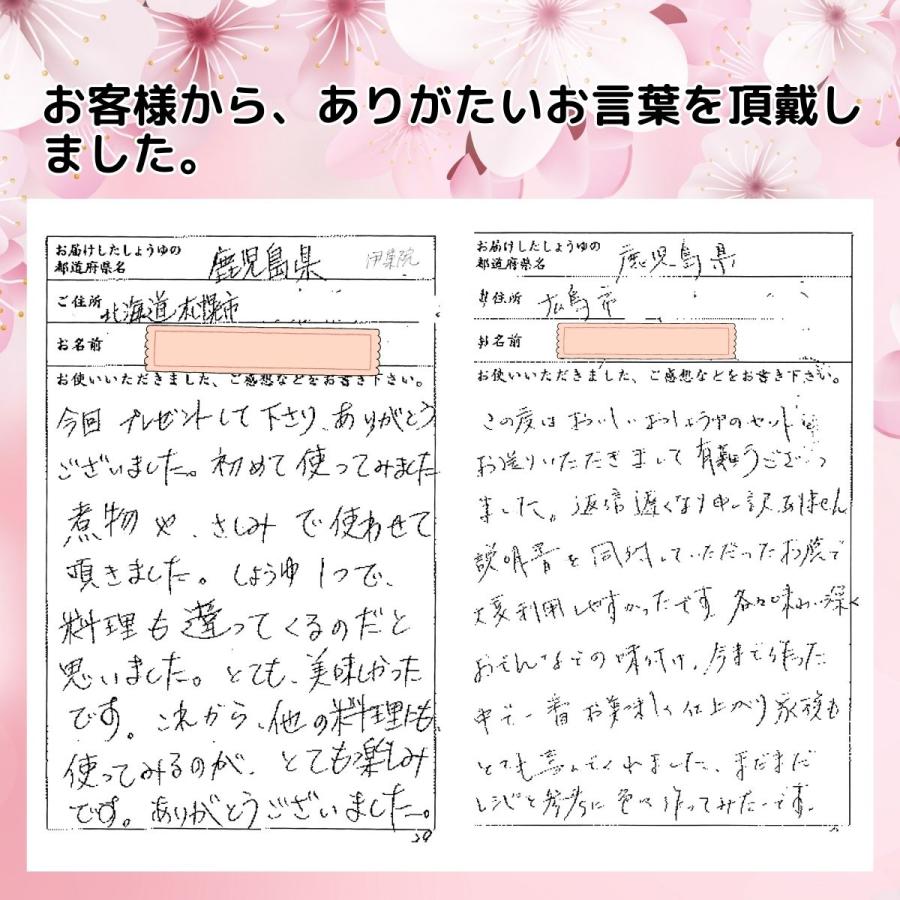 お客様から、ありがたいお言葉を頂戴し
ました。
お届けしたしょうゆの
都道府県名
鹿児島県
伊集院
ご住所
北海道札幌市
お名前
お使いいただきました、ご感想などをお書き下さい。
今回 プレゼントして下さり、ありがとう
ございました。初めて使ってみました
煮物や、さしみで使わせて
頂きました。しょうゆ1つで、
料理も違ってくるのだと
思いました。とても、美味しかった
です。これから、他の料理にも
使ってみるのが、とても楽しみ
です。ありがとうございました。
29
お届けしたしょうゆの
都道府県名
鹿児島県
ご住所
広島市
お名前
お使いいただきました、ご感想などをお書き下さい。
この度はおいしいおしょうゆのセットを
お送りいただきまして有難うござい
ました。返信遅くなり申し訳ありません
説明書を同封していただったお蔭で
大変利用しやすかったです。各々味わい深く
おでんなどの味付け、今まで作った
中で一番お美味しく仕上がり家族も
とても喜んでくれました、まだまだ
レシピを参考に色々作ってみたいです。